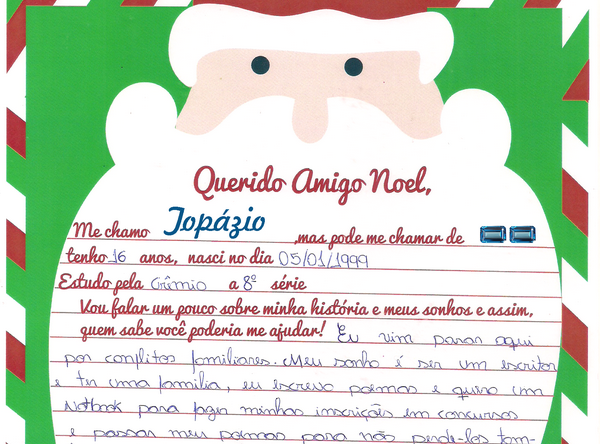 Querido Amigo Noel,
Me chamo Topázio ,mas pode me chamar de
tenho 16 anos, nasci no dia 05/01/1999
Estudo pela Grêmio a 8ª série
Vou falar um pouco sobre minha história e meus sonhos e assim,
quem sabe você poderia me ajudar! Eu vim parar aqui
por conflitos familiares. Meu sonho é ser um escritor
e ter uma família, eu escrevo poemas e quero um
Notbook para fazer minhas inscrições em concursos
e passar meu poemas para não perde-los tam-